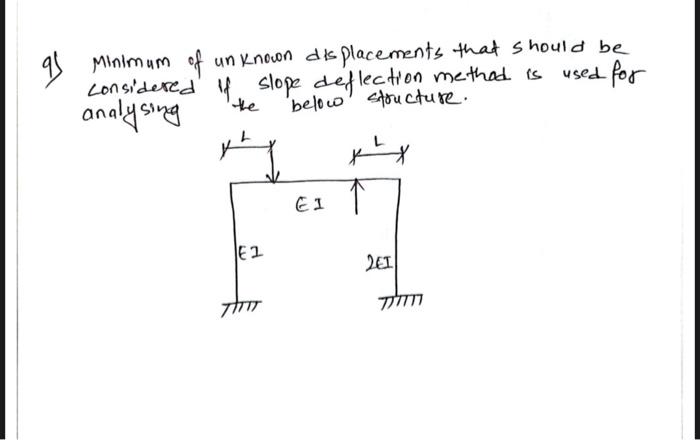 q) Minimum of unknown displacements that should be
considered if slope deflection method is used for
analysing the below structure.
L L
EI
EI 2EI